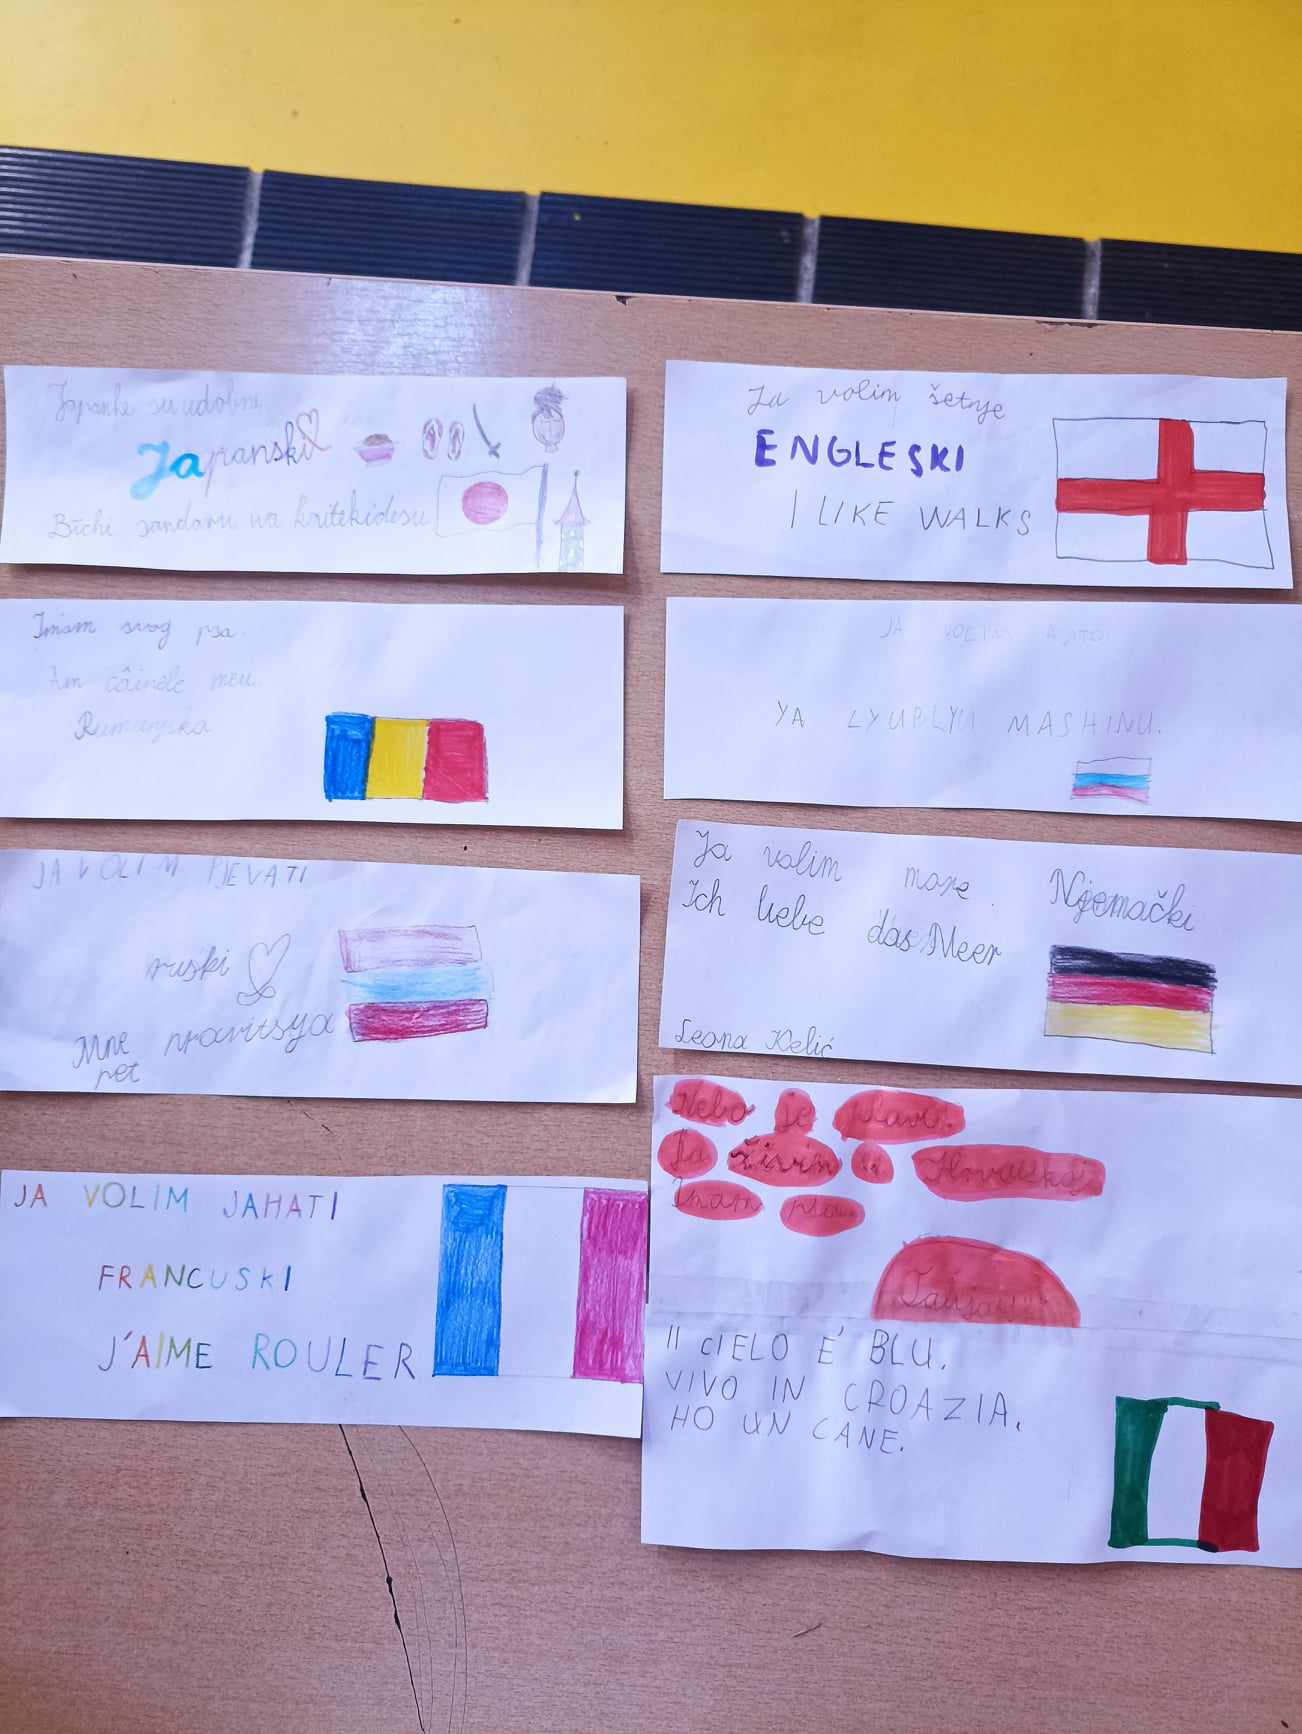 Japanke su udobne
Japanski
Bīchi sandaru wa kaitekidesu
Ja volim šetnje
ENGLESKI
I LIKE WALKS
Imam svog psa.
Am câinele meu.
Rumunjska
JA VOLIM AUTO
YA LYUBLYU MASHINU.
JA VOLIM PJEVATI
ruski
Mne nravitsya
pet
Ja volim more. Njemački
Ich liebe das Meer
Leona Kelić
JA VOLIM JAHATI
FRANCUSKI
J'AIME ROULER
Nebo je plavo.
Ja živim u Hrvatskoj.
Imam psa.
Il CIELO E' BLU.
VIVO IN CROAZIA.
HO UN CANE.